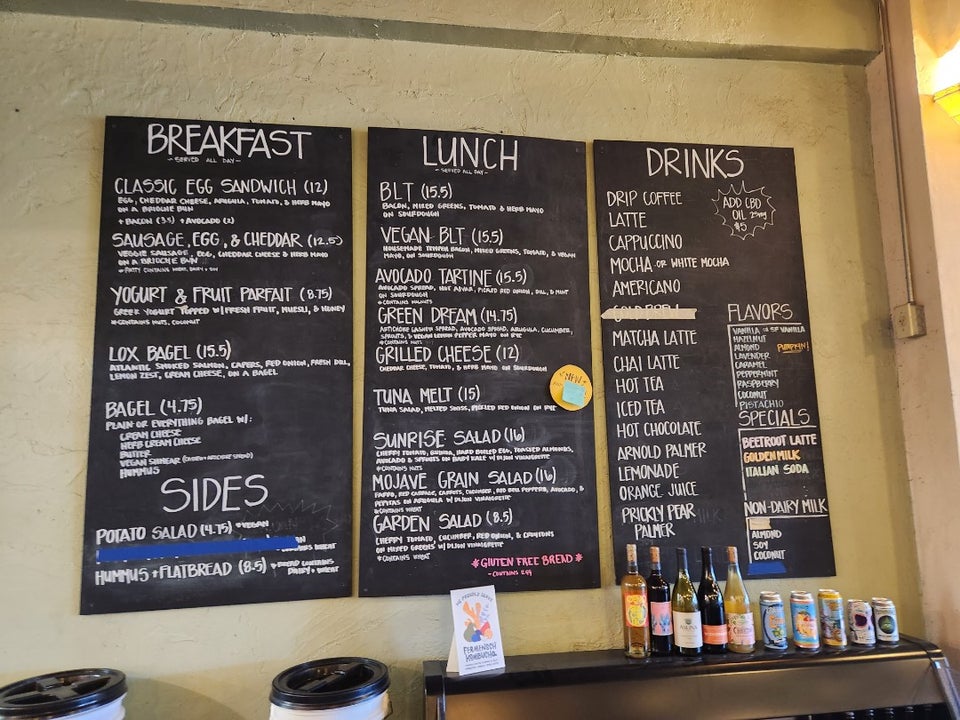 BREAKFAST
- SERVED ALL DAY -
CLASSIC EGG SANDWICH (12)
EGG, CHEDDAR CHEESE, ARUGULA, TOMATO, & HERB MAYO
ON A BRIOCHE BUN
+ BACON (3.5) + AVOCADO (2)
SAUSAGE, EGG, & CHEDDAR (12.5)
VEGGIE SAUSAGE, EGG, CHEDDAR CHEESE & HERB MAYO
ON A BRIOCHE BUN
*PATTY CONTAINS WHEAT, DAIRY & SOY
YOGURT & FRUIT PARFAIT (8.75)
GREEK YOGURT TOPPED W/ FRESH FRUIT, MUESLI, & HONEY
*CONTAINS NUTS, COCONUT
LOX BAGEL (15.5)
ATLANTIC SMOKED SALMON, CAPERS, RED ONION, FRESH DILL,
LEMON ZEST, CREAM CHEESE, ON A BAGEL
BAGEL (4.75)
PLAIN OR EVERYTHING BAGEL W/:
CREAM CHEESE
HERB CREAM CHEESE
BUTTER
VEGAN SHMEAR (CASHEW + ARTICHOKE SPREAD)
HUMMUS
SIDES
POTATO SALAD (4.75) *VEGAN
HUMMUS + FLATBREAD (8.5) *BREAD CONTAINS
DAIRY + WHEAT
LUNCH
- SERVED ALL DAY -
BLT (15.5)
BACON, MIXED GREENS, TOMATO & HERB MAYO
ON SOURDOUGH
VEGAN BLT (15.5)
HOUSEMADE TEMPEH BACON, MIXED GREENS, TOMATO, & VEGAN
MAYO, ON SOURDOUGH
AVOCADO TARTINE (15.5)
AVOCADO SPREAD, HOT AJVAR, PICKLED RED ONION, DILL, & MINT
ON SOURDOUGH
*CONTAINS WALNUTS
GREEN DREAM (14.75)
ARTICHOKE CASHEW SPREAD, AVOCADO SPREAD, ARUGULA, CUCUMBER,
SPROUTS, & VEGAN LEMON PEPPER MAYO ON RYE
*CONTAINS NUTS
GRILLED CHEESE (12)
CHEDDAR CHEESE, TOMATO, & HERB MAYO ON SOURDOUGH
NEW
TUNA MELT (15)
TUNA SALAD, MELTED SWISS, PICKLED RED ONION ON RYE
SUNRISE SALAD (16)
CHERRY TOMATO, QUINOA, HARD BOILED EGG, TOASTED ALMONDS,
AVOCADO & SPROUTS ON BABY KALE W/ DIJON VINAIGRETTE
*CONTAINS NUTS
MOJAVE GRAIN SALAD (16)
FARRO, RED CABBAGE, CARROTS, CUCUMBER, RED BELL PEPPERS, AVOCADO, &
PEPITAS ON ARUGULA W/ DIJON VINAIGRETTE
*CONTAINS WHEAT
GARDEN SALAD (8.5)
CHERRY TOMATO, CUCUMBER, RED ONION, & CROUTONS
ON MIXED GREENS W/ DIJON VINAIGRETTE
*CONTAINS WHEAT
*GLUTEN FREE BREAD*
- CONTAINS EGG
DRINKS
DRIP COFFEE
LATTE
CAPPUCCINO
MOCHA OR WHITE MOCHA
AMERICANO
MATCHA LATTE
CHAI LATTE
HOT TEA
ICED TEA
HOT CHOCOLATE
ARNOLD PALMER
LEMONADE
ORANGE JUICE
PRICKLY PEAR
PALMER
ADD CBD
OIL 25mg
$5
FLAVORS
VANILLA or SF VANILLA
HAZELNUT
ALMOND
LAVENDER
CARAMEL
PEPPERMINT
RASPBERRY
COCONUT
PISTACHIO
PUMPKIN!
SPECIALS
BEETROOT LATTE
GOLDEN MILK
ITALIAN SODA
NON-DAIRY MILK
ALMOND
SOY
COCONUT
WE PROUDLY SERVE
FERMENSCH
KOMBUCHA